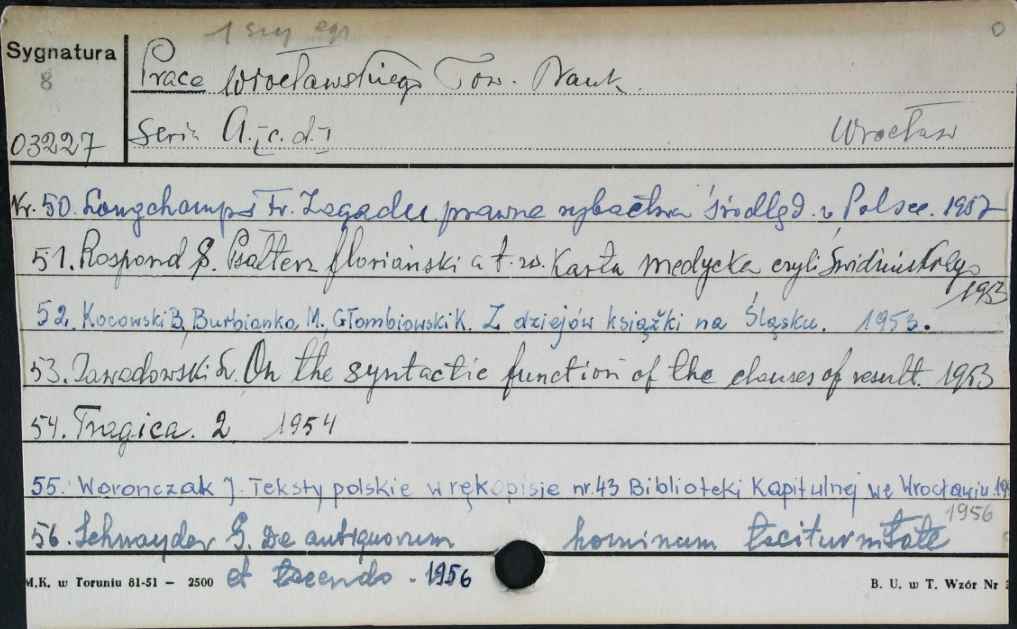 1 szy egz
0
Sygnatura
8
03227
Prace Wrocławskiego Tow. Nauk.
Seria A. I c. d. I Wrocław
Nr. 50. Longchamps Fr. Zagadn. prawne rybactwa śródląd. w Polsce. 1957
51. Rospond S. Psałterz floriański a t. zw. Karta medycka czyli Świdzińskiego
1953
52. Kocowski B, Burbianka M. Głombiowski K. Z dziejów książki na Śląsku. 1953.
53. Zawadowski L. On the syntactic function of the clauses of result. 1953
54. Tragica. 2 1954
55. Woronczak J. Teksty polskie w rękopisie nr. 43 Biblioteki Kapitulnej we Wrocławiu. 19
1956
56. Schnayder G. De antiquorum hominum taciturnitate
et tacendo. 1956
M.K. w Toruniu 81-51 — 2500 B. U. w T. Wzór Nr